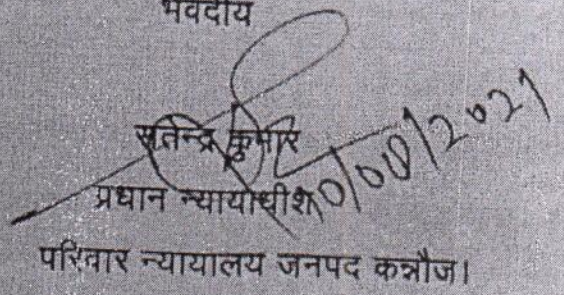 भवदीय
सतेन्द्र कुमार
प्रधान न्यायाधीश
परिवार न्यायालय जनपद कन्नौज।